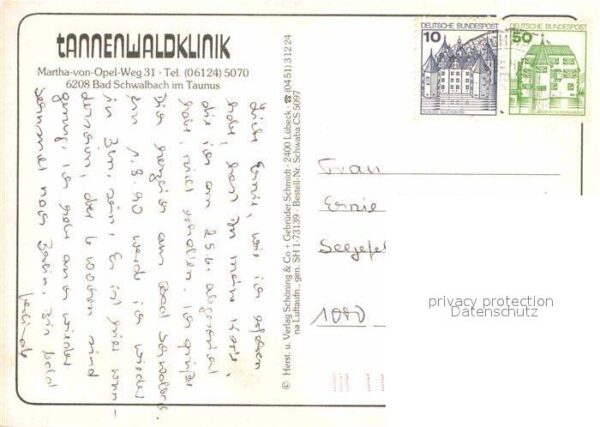 tANNENWALDKLINIK
Martha-von-Opel-Weg 31 · Tel. (0 61 24) 50 70
6208 Bad Schwalbach im Taunus
DEUTSCHE BUNDESPOST
10
DEUTSCHE BUNDESPOST
50
Liebe Ernie, wie ich erfahren
habe, hast Du meine Karte,
die ich am 25.6. abgeschickt
habe, nicht erhalten. Ich grüße
Dich herzlich aus Bad Schwalbach.
Am 1.8.90 werde ich wieder
in Bln. sein. Es ist hier wun-
derschön, aber 6 Wochen sind
genug, ich gehe auch wieder
nach Berlin. Bis bald
© Herst. u. Verlag Schöning & Co + Gebrüder Schmidt · 2400 Lübeck · ☎ (04 51) 3 12 24
na Luftaufn., gen. SH 1-73139 · Bestell-Nr. Schwaba CS 5097
Frau
Ernie
Seegefel
1000
privacy protection
Datenschutz